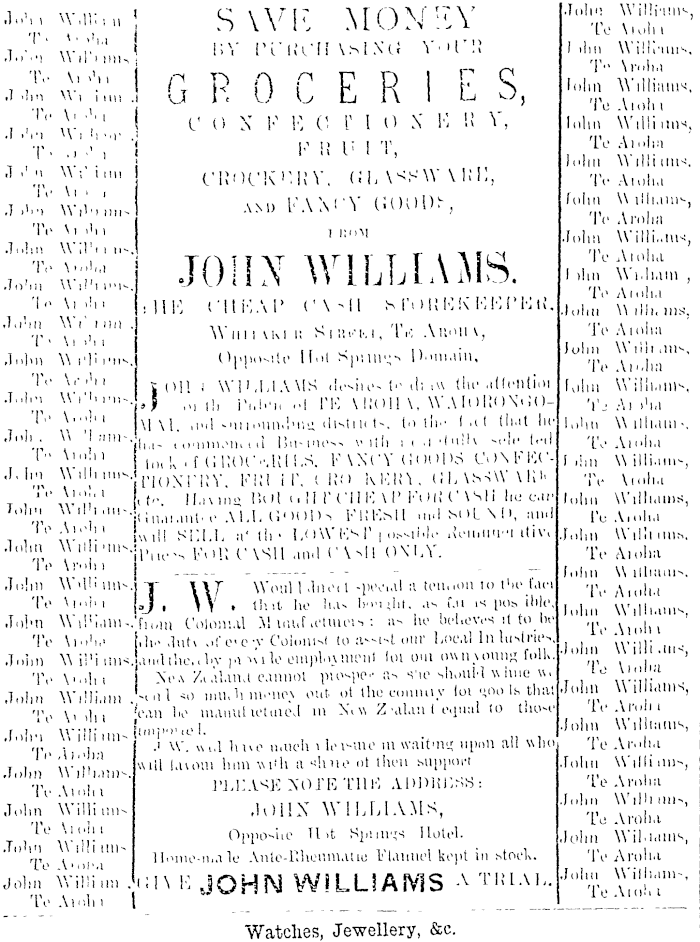 John Williams
Te Aroha
John Williams
Te Aroha
John Williams
Te Aroha
John Williams
Te Aroha
John Williams
Te Aroha
John Williams
Te Aroha
John Williams,
Te Aroha
John Williams
Te Aroha
John Williams,
Te Aroha
John Williams,
Te Aroha
John Williams,
Te Aroha
John Williams,
Te Aroha
John Williams,
Te Aroha
John Williams,
Te Aroha
John Williams,
Te Aroha
John Williams,
Te Aroha
John Williams,
Te Aroha
John Williams,
Te Aroha
John William
Te Aroha
John Williams
Te Aroha
John Williams,
Te Aroha
John Williams
Te Aroha
John Williams
Te Aroha
John William
Te Aroha
SAVE MONEY
BY PURCHASING YOUR
GROCERIES,
CONFECTIONERY,
FRUIT,
CROCKERY, GLASSWARE,
AND FANCY GOODS,
FROM
JOHN WILLIAMS.
THE CHEAP CASH STOREKEEPER.
WHITAKER STREET, TE AROHA,
Opposite Hot Springs Domain,
JOHN WILLIAMS desires to draw the attention
of the of TE AROHA, WAIORONGO-
MAI, and surrounding districts, to the fact that he
has commenced Business with a carefully selected
stock of GROCERIES, FANCY GOODS CONFEC-
TIONERY, FRUIT, CROCKERY, GLASSWARE
etc. Having BOUGHT CHEAP FOR CASH he can
Guarantee ALL GOODS FRESH and SOUND, and
will SELL at the LOWEST possible Remunerative
Prices FOR CASH and CASH ONLY.
J. W. Would direct special attention to the fact
that he has bought, as far as possible,
from Colonial Manufacturers; as he believes it to be
the duty of every Colonist to assist our Local Industries,
and thereby provide employment for our own young folk.
New Zealand cannot prosper as she should while we
send so much money out of the country for goods that
can be manufactured in New Zealand equal to those
imported.
J. W. will have much pleasure in waiting upon all who
will favour him with a share of their support
PLEASE NOTE THE ADDRESS:
JOHN WILLIAMS,
Opposite Hot Springs Hotel.
Home-made Ante-Rheumatic Flannel kept in stock.
GIVE JOHN WILLIAMS A TRIAL.
John Williams,
Te Aroha
John Williams,
Te Aroha
John Williams,
Te Aroha
John Williams,
Te Aroha
John Williams,
Te Aroha
John Williams,
Te Aroha
John Williams,
Te Aroha
John William,
Te Aroha
John Williams,
Te Aroha
John Williams,
Te Aroha
John Williams,
Te Aroha
John Williams,
Te Aroha
John Williams,
Te Aroha
John Williams,
Te Aroha
John Williams,
Te Aroha
John Williams,
Te Aroha
John Williams,
Te Aroha
John Williams,
Te Aroha
John Williams,
Te Aroha
John Williams,
Te Aroha
John Williams,
Te Aroha
John Williams,
Te Aroha
John Williams,
Te Aroha
John Williams,
Te Aroha
Watches, Jewellery, &c.